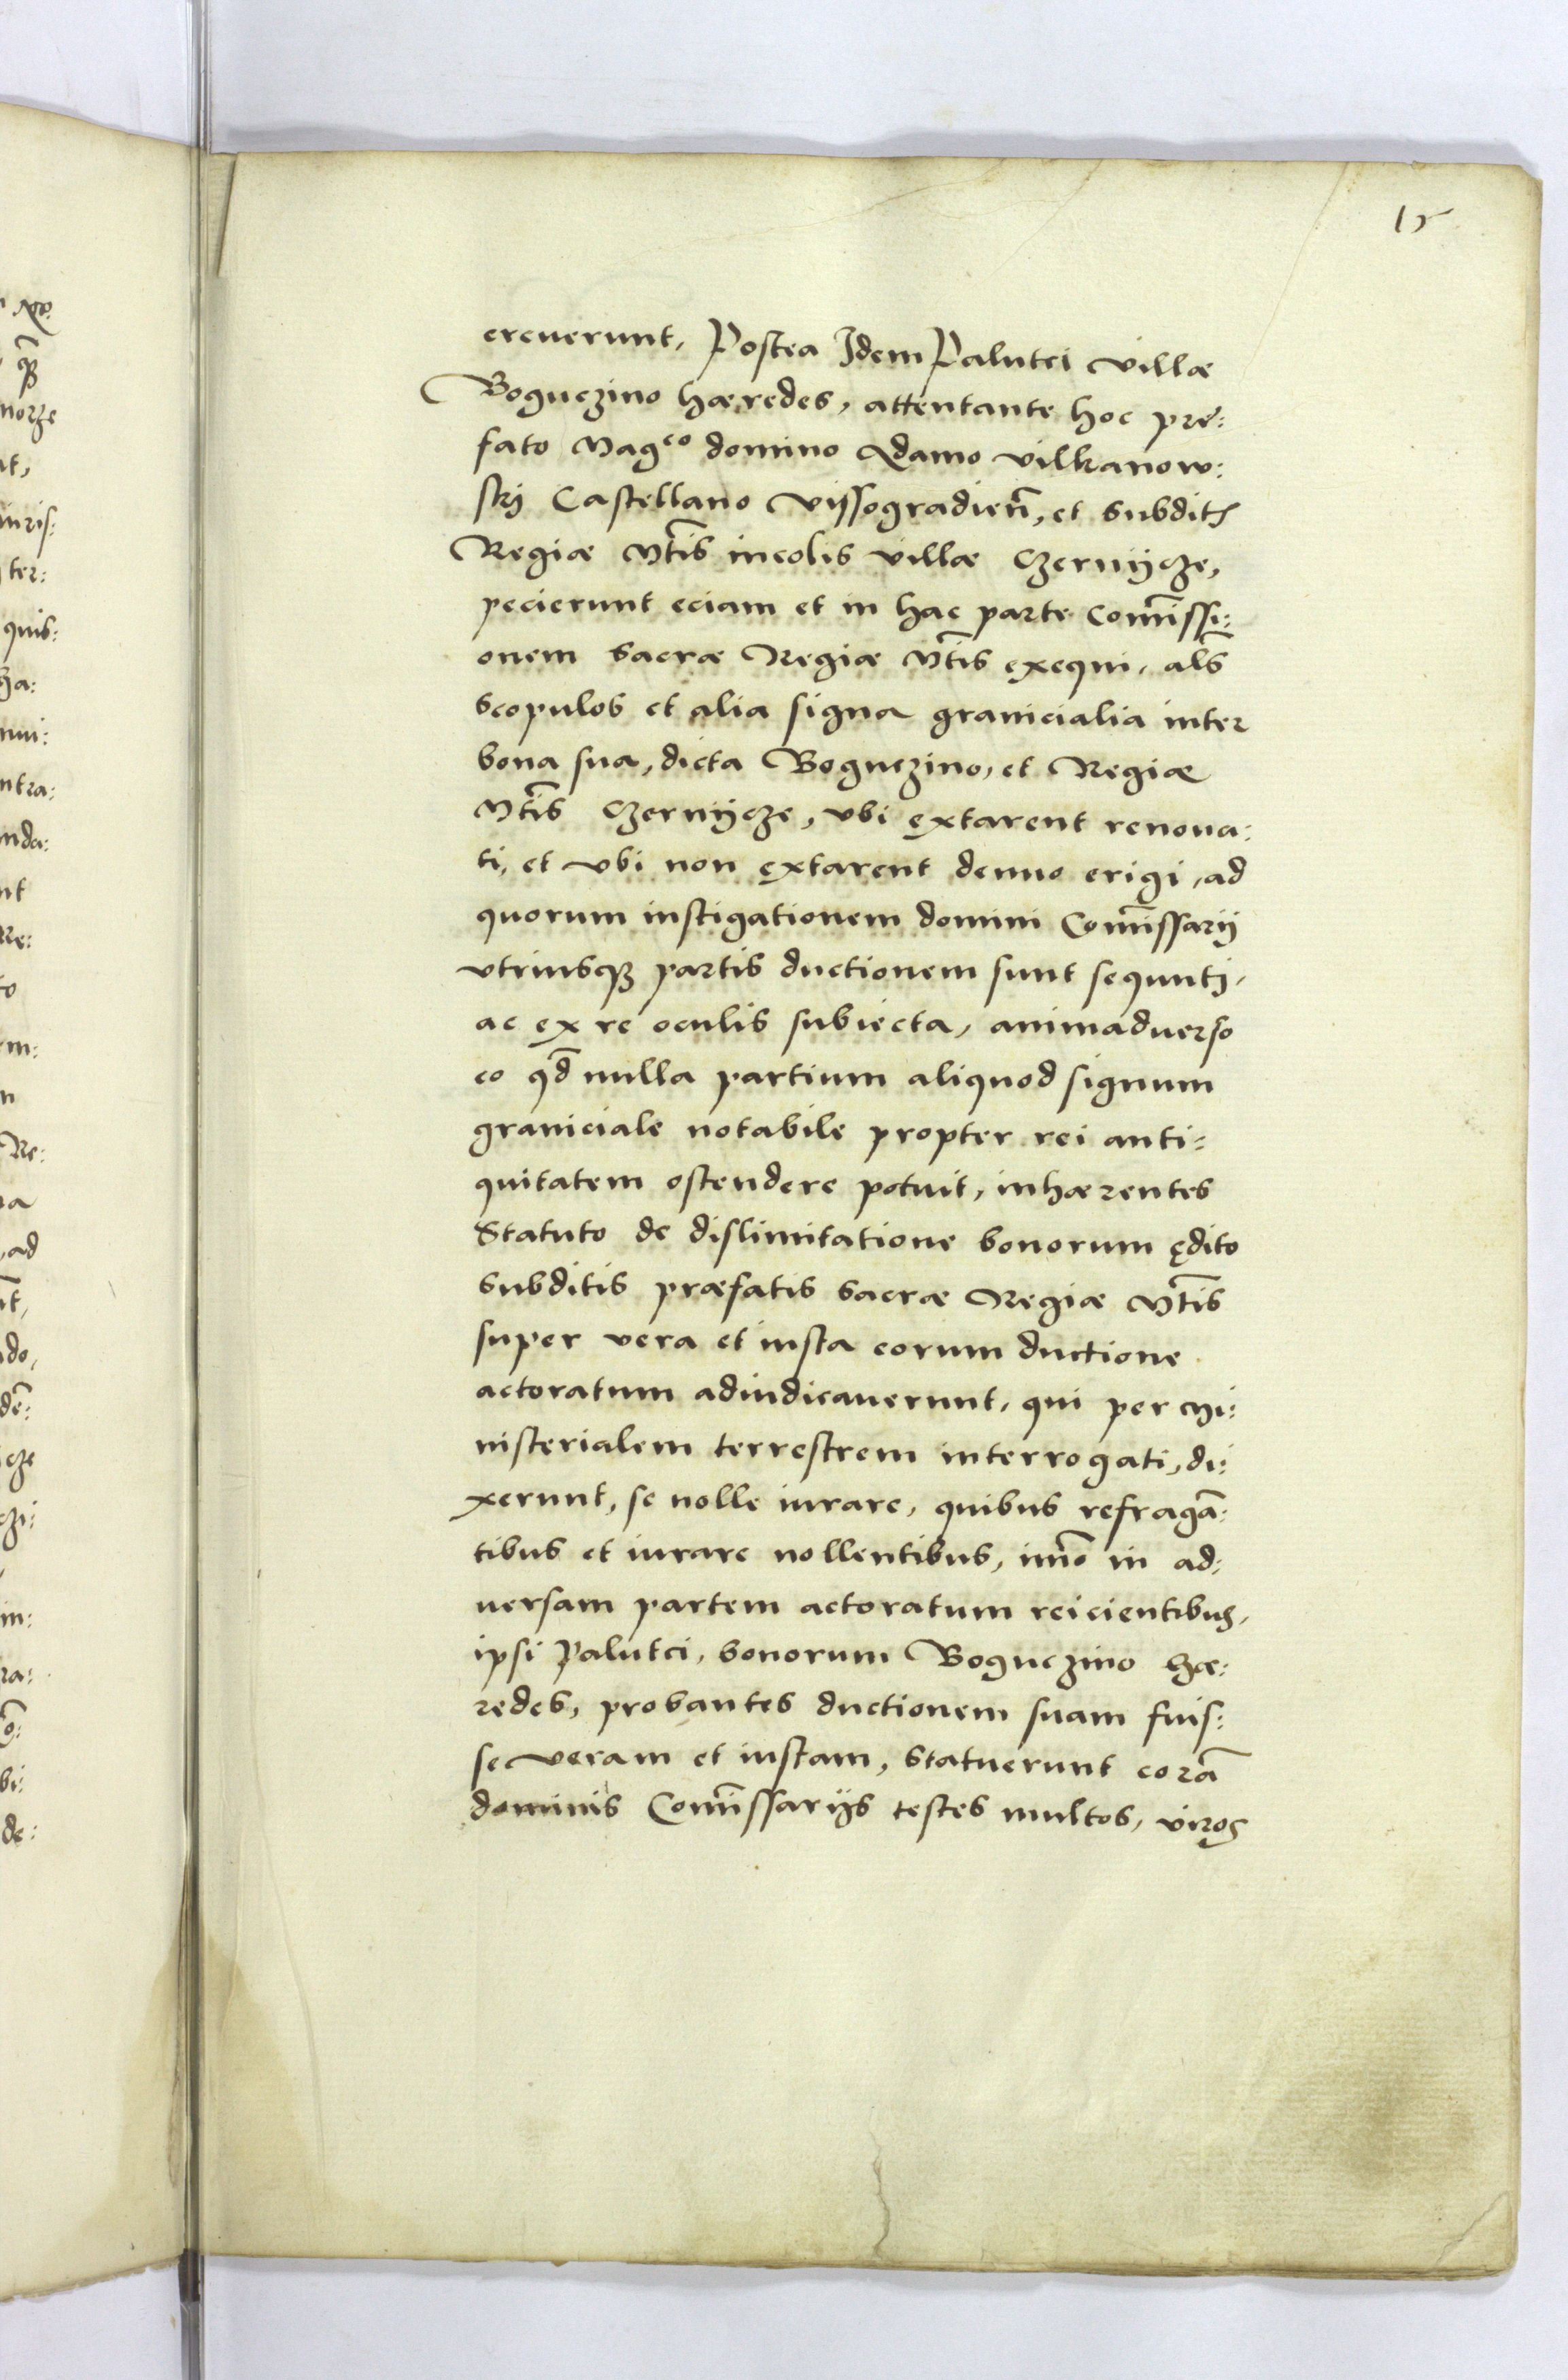 15
creuerunt, Postea Idem Palutci villæ
Boguczino hæredes, attentante hoc præ:
fato Mag^co domino Adamo vilkanow:
skij Castellano Vijssogradien̄, et subdit̃
Regiæ Mt̄is incolis villæ Czernijcze,
pecierunt eciam et in hac parte Com̄issi:
onem sacræ Regiæ Mt̄is exequi, al̄s
scopulos et alia signa granicialia inter
bona sua, dicta Boguczino, et Regiæ
Mt̄is Czernijcze, vbi extarent renoua:
ri, et vbi non extarent denuo erigi, ad
quorum instigationem domini Com̄issarij
vtriusq3 partis ductionem sunt sequuti,
ac ex re oculis subiecta, animaduerso
eo qd̄ nulla partium aliquod signum
graniciale notabile propter rei anti:
quitatem ostendere potuit, inhærentes
Statuto de dislimitatione bonorum ędito
subditis præfatis sacræ Regiæ Mt̄is
super vera et iusta eorum ductione
actoratum adiudicauerunt, qui per mi:
nisterialem terrestrem interrogati, di:
xerunt, se nolle iurare, quibus refragā:
tibus et iurare nollentibus, im̄o in ad:
uersam partem actoratum reicientibus,
ipsi Palutci, bonorum Boguczino hæ:
redes, probantes ductionem suam fuis:
se veram et iustam, statuerunt corā
dominis Com̄issarijs testes multos, viros